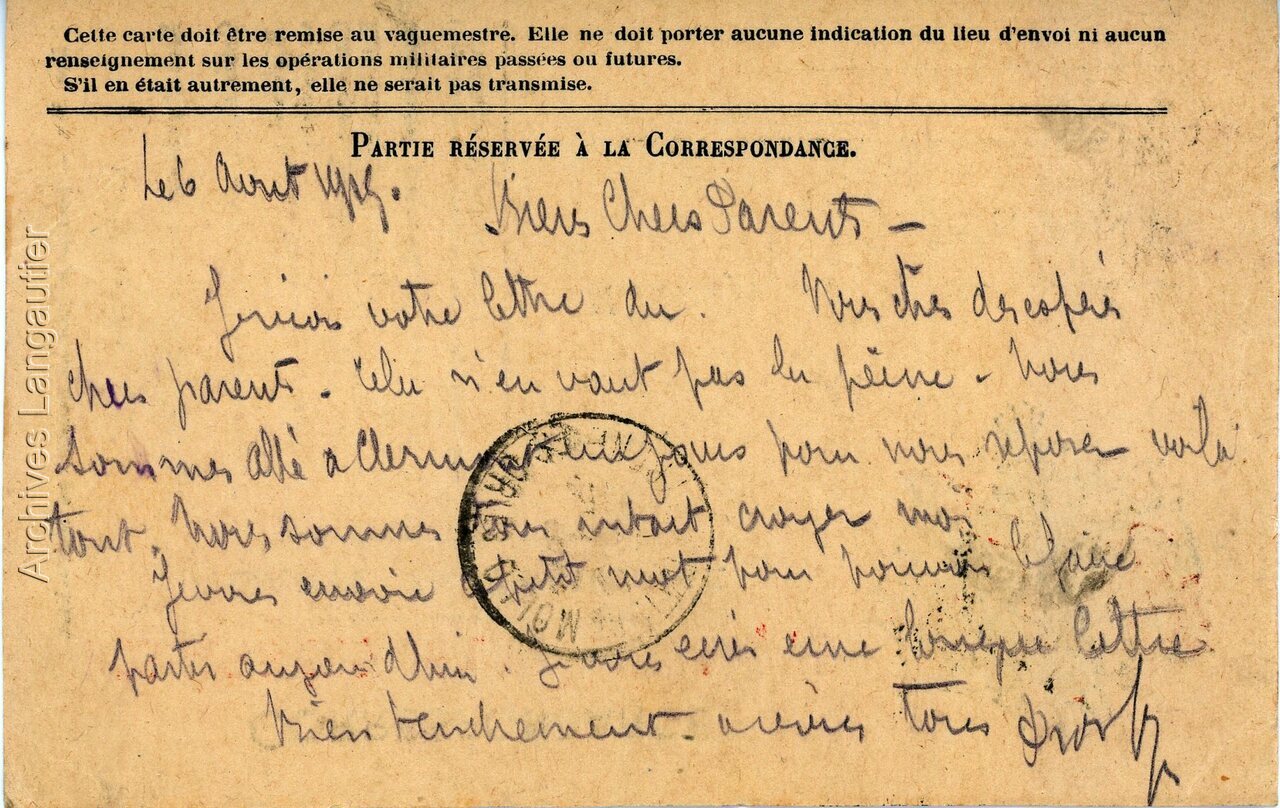 Cette carte doit être remise au vaguemestre. Elle ne doit porter aucune indication du lieu d'envoi ni aucun
renseignement sur les opérations militaires passées ou futures.
S'il en était autrement, elle ne serait pas transmise.
PARTIE RÉSERVÉE À LA CORRESPONDANCE.
Le 6 Avril 1915.
Biens Chers Parents –
votre lettre du. Vous êtes désespéré
chers parents. Cela n'en vaut pas la peine – Nous
sommes allé a Clermont jours pour nous reposer voila
tout. Nous sommes tous croyez moi
Je vous envoie petit mot pour pouvoir le faire
partir aujourd'hui. Je vous écris une longue lettre
Bien tendrement. a vous tous
Archives Langautier